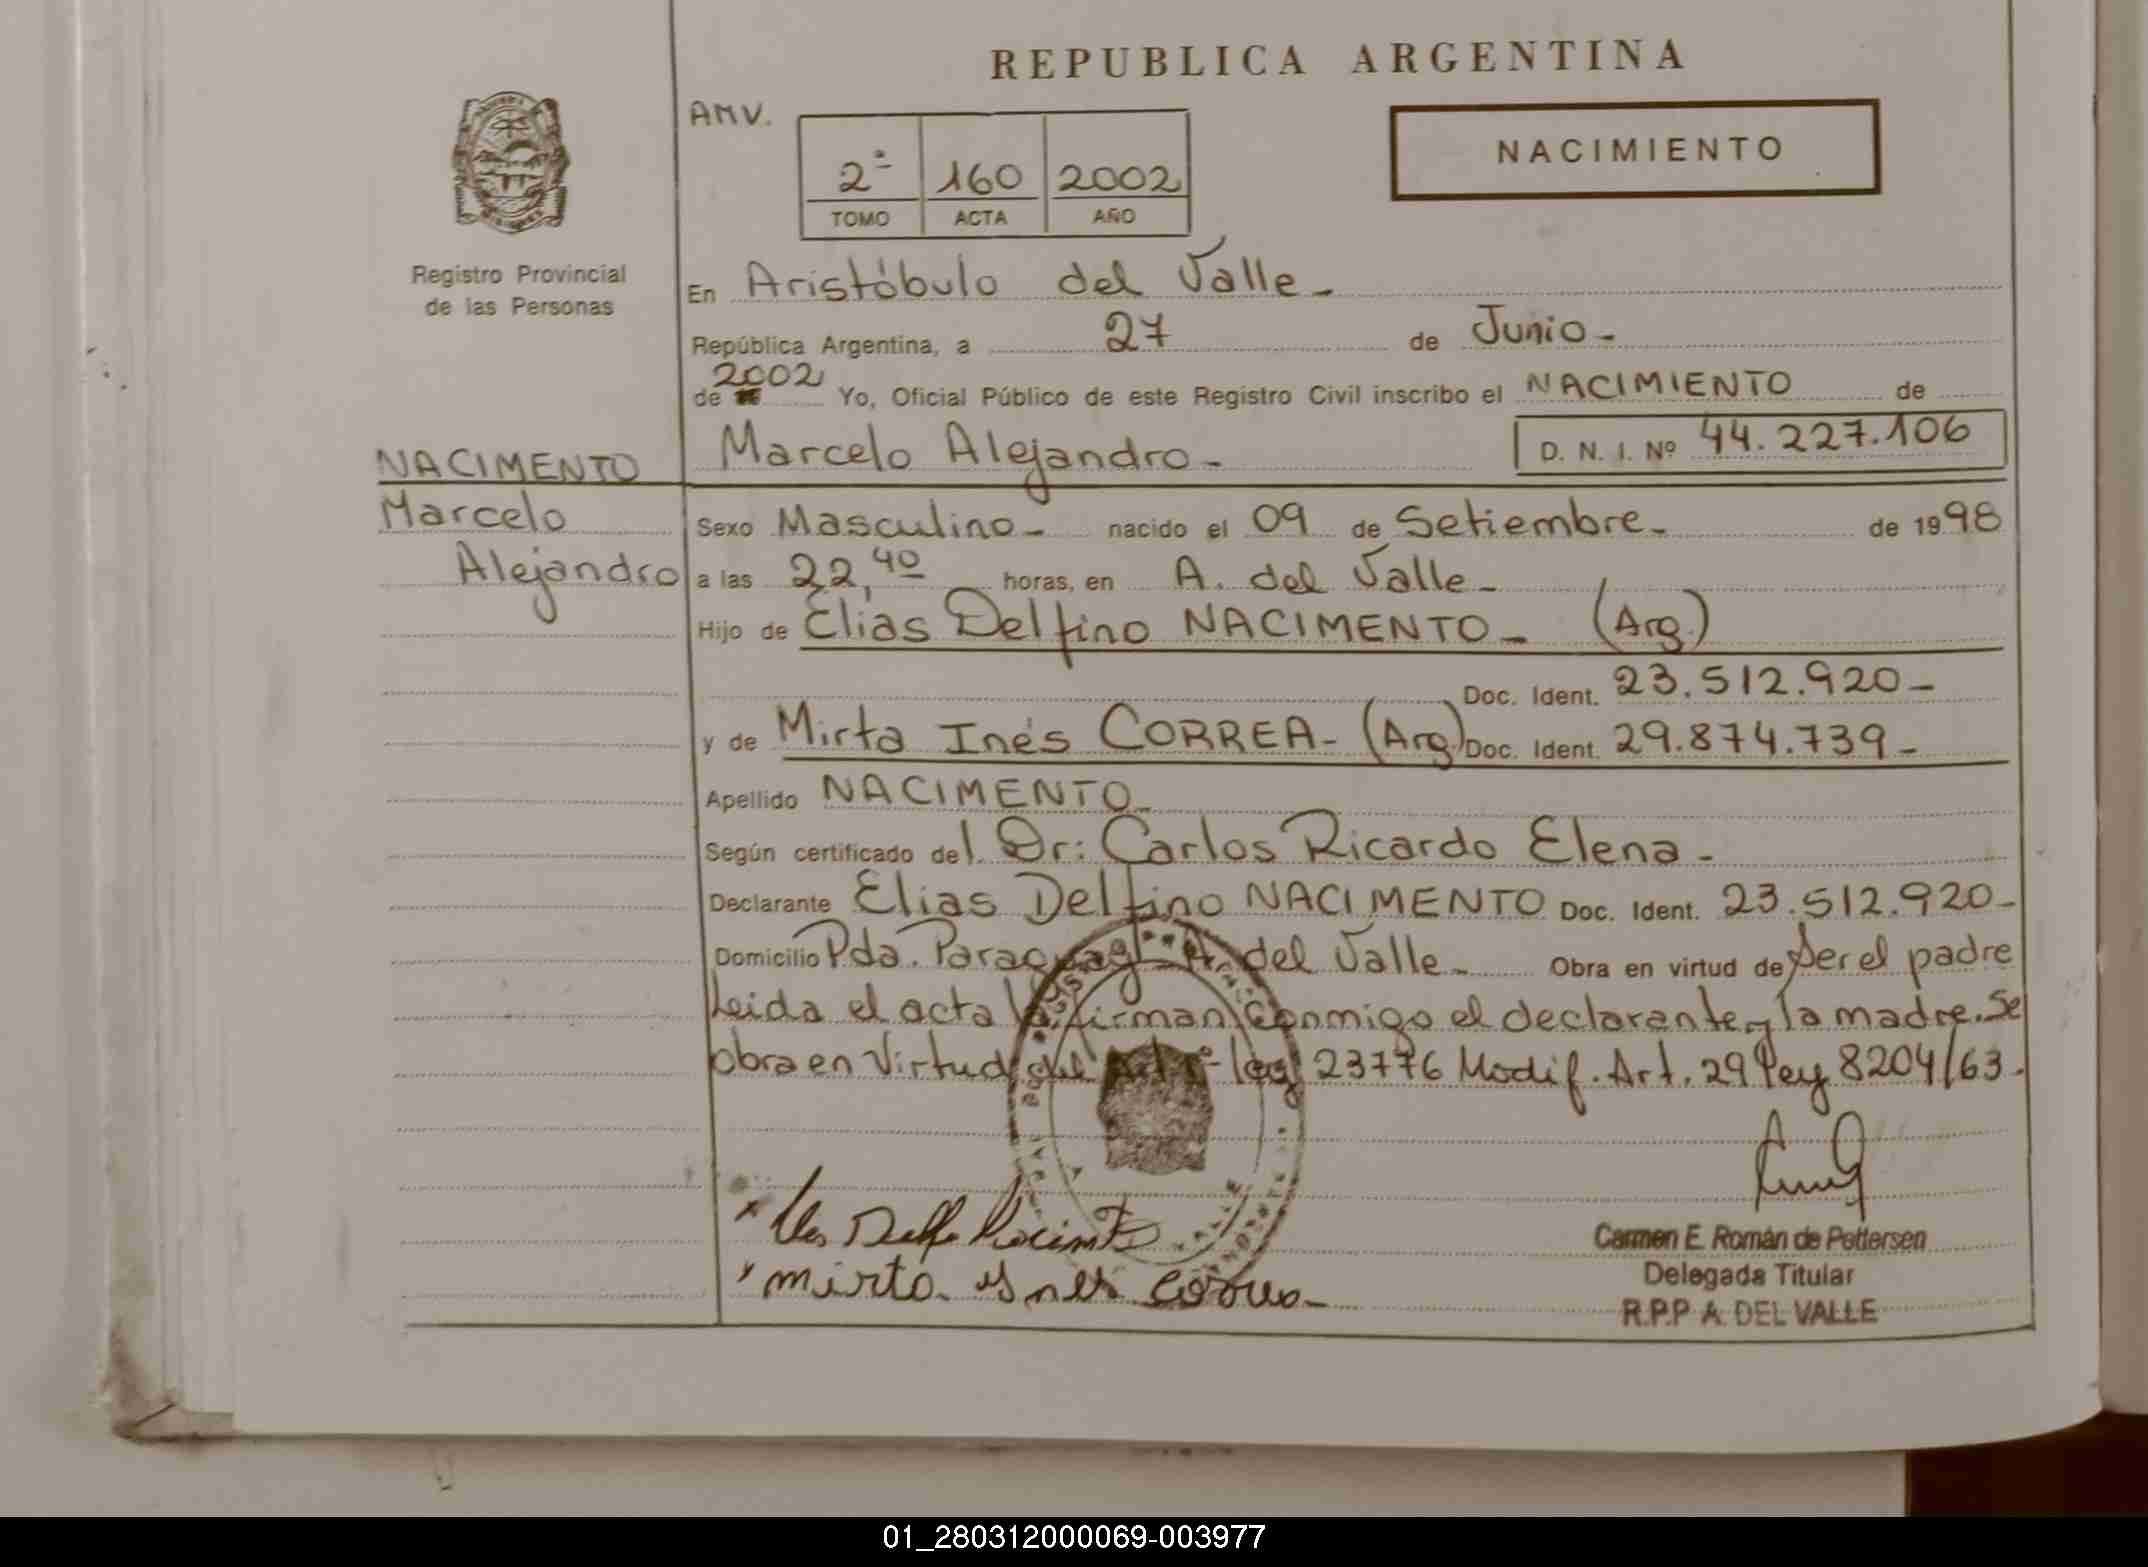 REPUBLICA ARGENTINA
AMV.
2º 160 2002
TOMO ACTA AÑO
NACIMIENTO
Registro Provincial
de las Personas
En Aristóbulo del Valle -
República Argentina, a 27 de Junio -
2002
de Yo, Oficial Público de este Registro Civil inscribo el NACIMIENTO de
Marcelo Alejandro - D. N. I. Nº 44.227.106
NACIMENTO
Marcelo
Alejandro
Sexo Masculino - nacido el 09 de Setiembre - de 1998
a las 22,40 horas, en A. del Valle -
Hijo de Elias Delfino NACIMENTO - (Arg.)
Doc. Ident. 23.512.920 -
y de Mirta Inés CORREA - (Arg.) Doc. Ident. 29.874.739 -
Apellido NACIMENTO -
Según certificado del Dr: Carlos Ricardo Elena -
Declarante Elias Delfino NACIMENTO Doc. Ident. 23.512.920 -
Domicilio Pda. Paraguay - A. del Valle - Obra en virtud de ser el padre
Leida el acta la firman conmigo el declarante y la madre. Se
obra en Virtud del ley 23776 Modif. Art. 29 ley 8204/63.
mirta ynes correa -
Carmen E. Román de Pettersen
Delegada Titular
R.P.P A. DEL VALLE
01_280312000069-003977